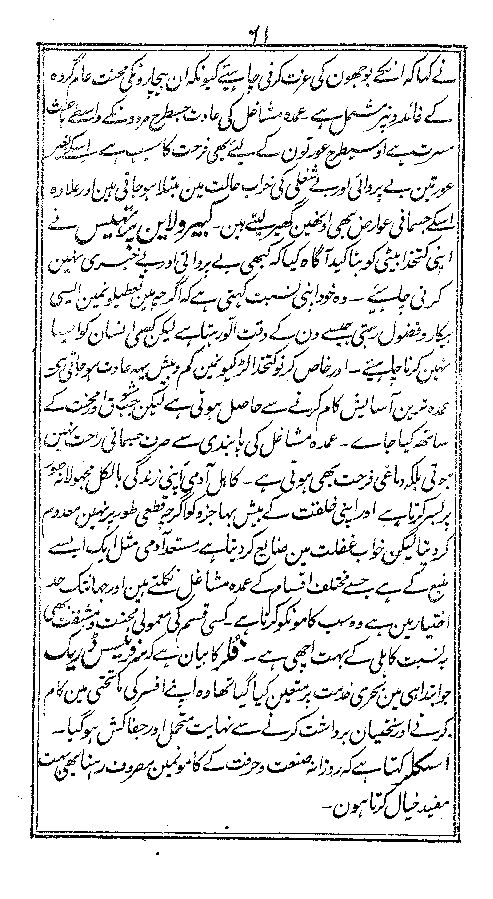 ۶۱
نے کہا کہ انکے بوجھون کی عزت کرنی چاہیئے کیونکہ ان بیچارونکی محنت عام گروہ
کے فائدونپر مشتمل ہے عمدہ مشاغل کی عادت جسطرح مردونکے واسطے باعث
مسرت ہے اوسیطرح عورتون کے لیئے بھی فرحت کا سبب ہے اسکے بغیر
عورتین بے پروائی اور بے شغلی کی خراب حالت مین مبتلا ہو جاتی ہین اور علاوہ
اسکے جسمانی عوارض بھی اونھین گھیر لیتے ہین۔ کیپرولاین پرتھیس نے
اپنی کتخدا بیٹی کو بتاکید آگاہ کیا کہ کبھی بے پروائی اور بے خبری نہین
کرنی چاہیئے۔ وہ خود اپنی نسبت کہتی ہے کہ اگرچہ مین تعطیلونمین ایسی
بیکار و فضول رہتی جیسے دن کے وقت الّو رہتا ہے لیکن کسی انسان کو ایسا
نہین کرنا چاہیئے۔ اور خاص کر نو کتخدا لڑکیونمین کم و بیش یہہ عادت ہو جاتی ہے
عمدہ ترین آسایش کام کرنے سے حاصل ہوتی ہے لیکن جب شوق اور محنت کے
ساتھ کیا جاے۔ عمدہ مشاغل کی پابندی سے صرف جسمانی راحت نہین
ہوتی بلکہ دماغی فرحت بھی ہوتی ہے۔ کاہل آدمی اپنی زندگی بالکل مجہولانہ طور
پر بسر کرتا ہے اور اپنی خلقت کے بیش بہا جزو کو اگرچہ قطعی طور پر نہین معدوم
کر دیتا لیکن خواب غفلت مین ضایع کر دیتا ہے مستعد آدمی مثل ایک ایسے
منبع کے ہے جسسے مختلف اقسام کے عمدہ مشاغل نکلتے ہین اور جہانتک حد
اختیار مین ہے وہ سب کامونکو کرتا ہے کسی قسم کی معمولی محنت و مشقت بھی
بہ نسبت کاہلی کے بہت اچھی ہے۔ فلر کا بیان ہے کہ سر فرینسس ڈریک
جو ابتدا ہی مین بحری خدمت پر متعین کیا گیا تھا وہ اپنے افسر کی ماتحتی مین کام
کرنے اور سختیان برداشت کرنے سے نہایت متحمل اور جفاکش ہو گیا۔
اسکلر کہتا ہے کہ روزانہ صنعت و حرفت کے کامونمین مصروف رہنا بھی بہت
مفید خیال کرتا ہون۔